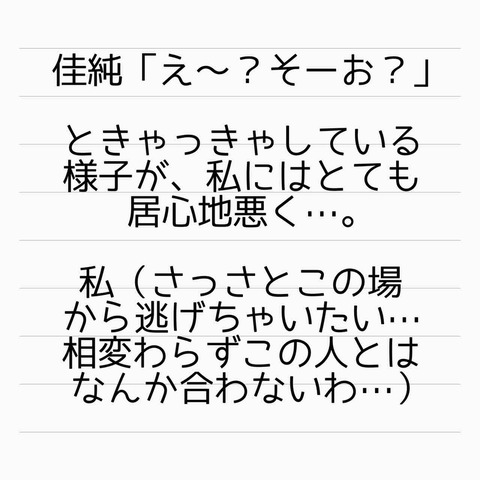 佳純「え～？そーお？」
ときゃっきゃしている
様子が、私にはとても
居心地悪く…。
私（さっさとこの場
から逃げちゃいたい…
相変わらずこの人とは
なんか合わないわ…）